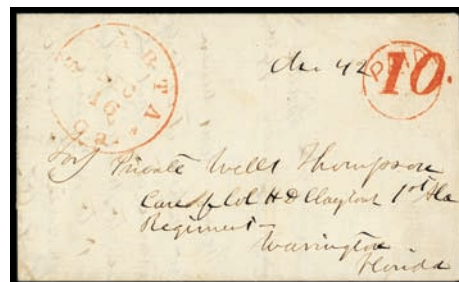 SPARTA
16
GEO.
PAID
10.
For Private Wells Thompson
Care of Col H D Clayton 1st Ala
Regiment
Warrington
Florida